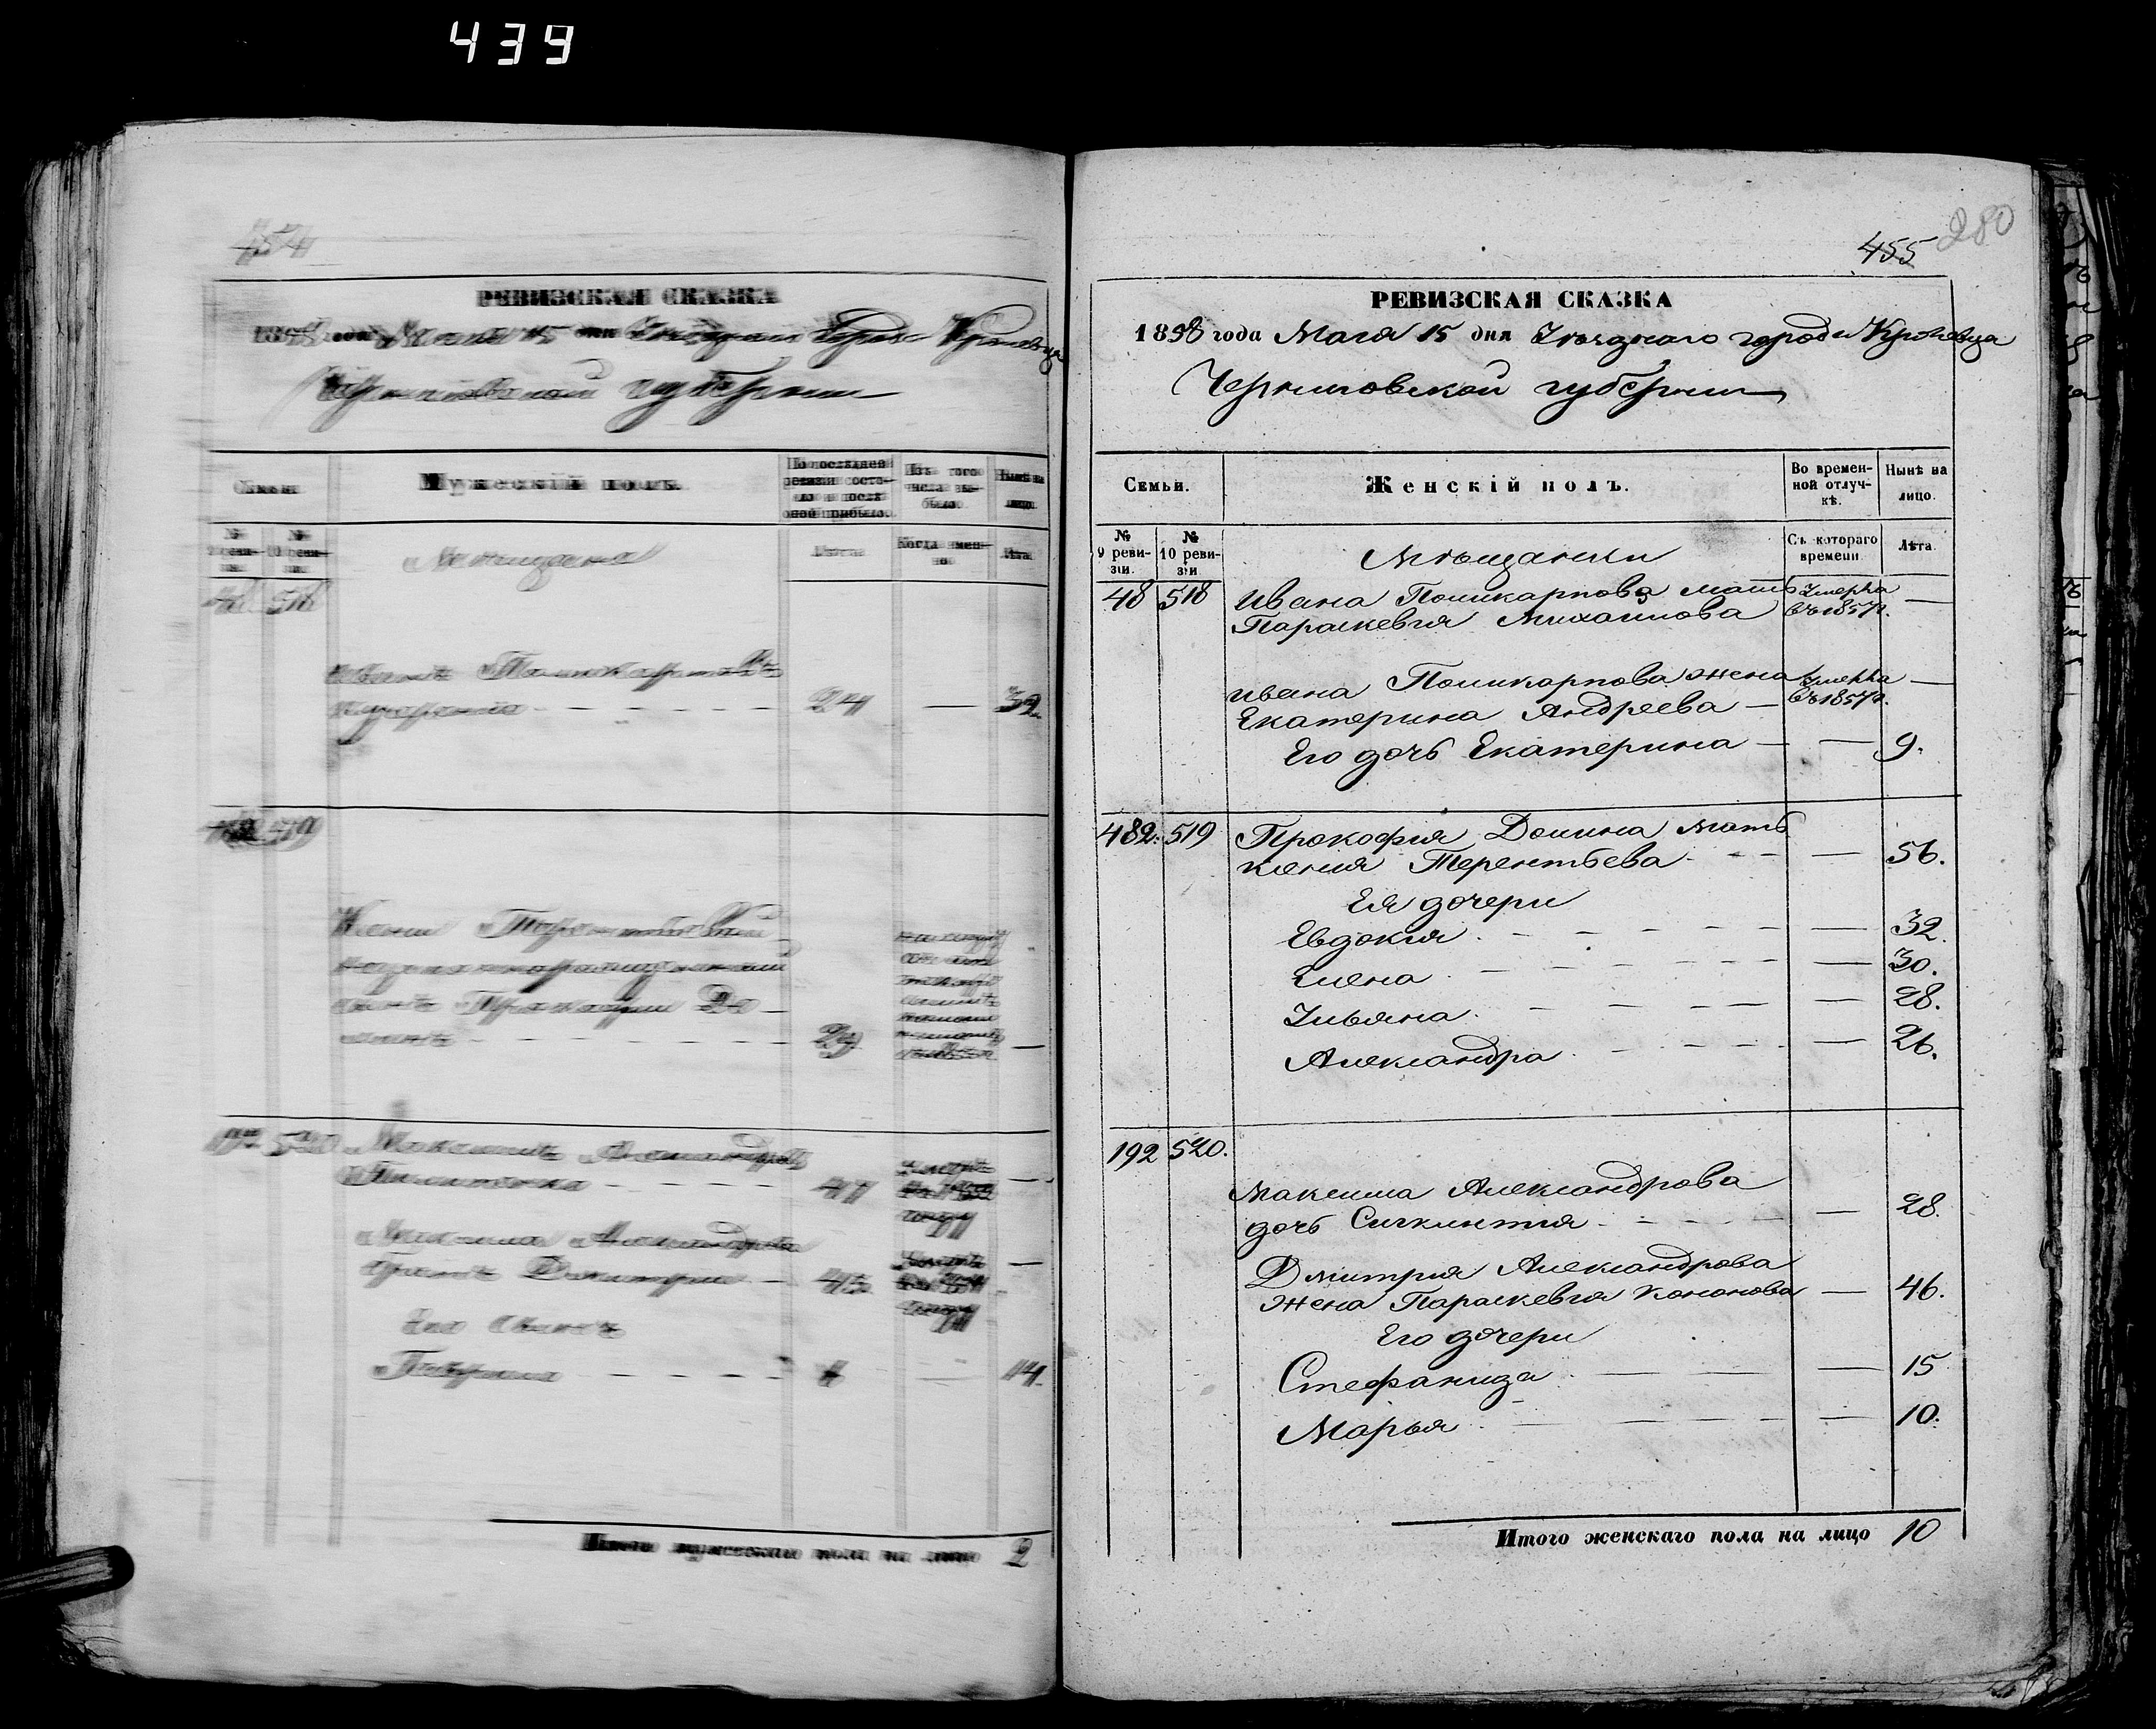 439
454
РЕВИЗСКАЯ СКАЗКА
1858 года Мая 15 дня Уезднаго города Кролевца
Черниговской губернии
Семьи.
Мужескій полъ.
По последней ревизіи состояло и после оной прибыло.
Изъ того числа выбыло.
Нынѣ на лицо.
№ 9 ревизіи.
№ 10 ревизіи.
Мещане
Лѣта.
Когда именно.
Лѣта.
48 518
Иванъ Поликарповъ
24 — 32
482 519
Ксеніи Терентьевой
сынъ Прокофий До
минъ 29 —
192 520 Максимъ Александровъ
47 —
Максима Александрова
братъ Дмитрий — 43 —
Его сынъ
14.
Итого мужескаго пола на лицо 2
280
455
РЕВИЗСКАЯ СКАЗКА
1858 года Мая 15 дня Уѣзднаго города Кролевца
Черниговской губернии
Семьи.
Женскій полъ.
Во временной отлучкѣ.
Нынѣ на лицо.
№ 9 ревизіи.
№ 10 ревизіи.
Мѣщанки
Съ котораго времени
Лѣта.
48 518 Ивана Поликарпова мать Умерла —
Параскевия Михаилова въ 1857 г.
Ивана Поликарпова жена Умерла —
Екатерина Андреева — въ 1857 г.
Его дочь Екатерина — — 9.
482. 519 Прокофия Домина мать
Ксения Терентьева — 56.
Ея дочери
Евдокия — 32.
Елена — 30.
Ульяна — 28.
Александра — 26.
192 520.
Максима Александрова
дочь Сигклития — 28.
Дмитрия Александрова
жена Параскевия Кононова — 46.
Его дочери
Стефанида — 15
Марья — 10.
Итого женскаго пола на лицо 10